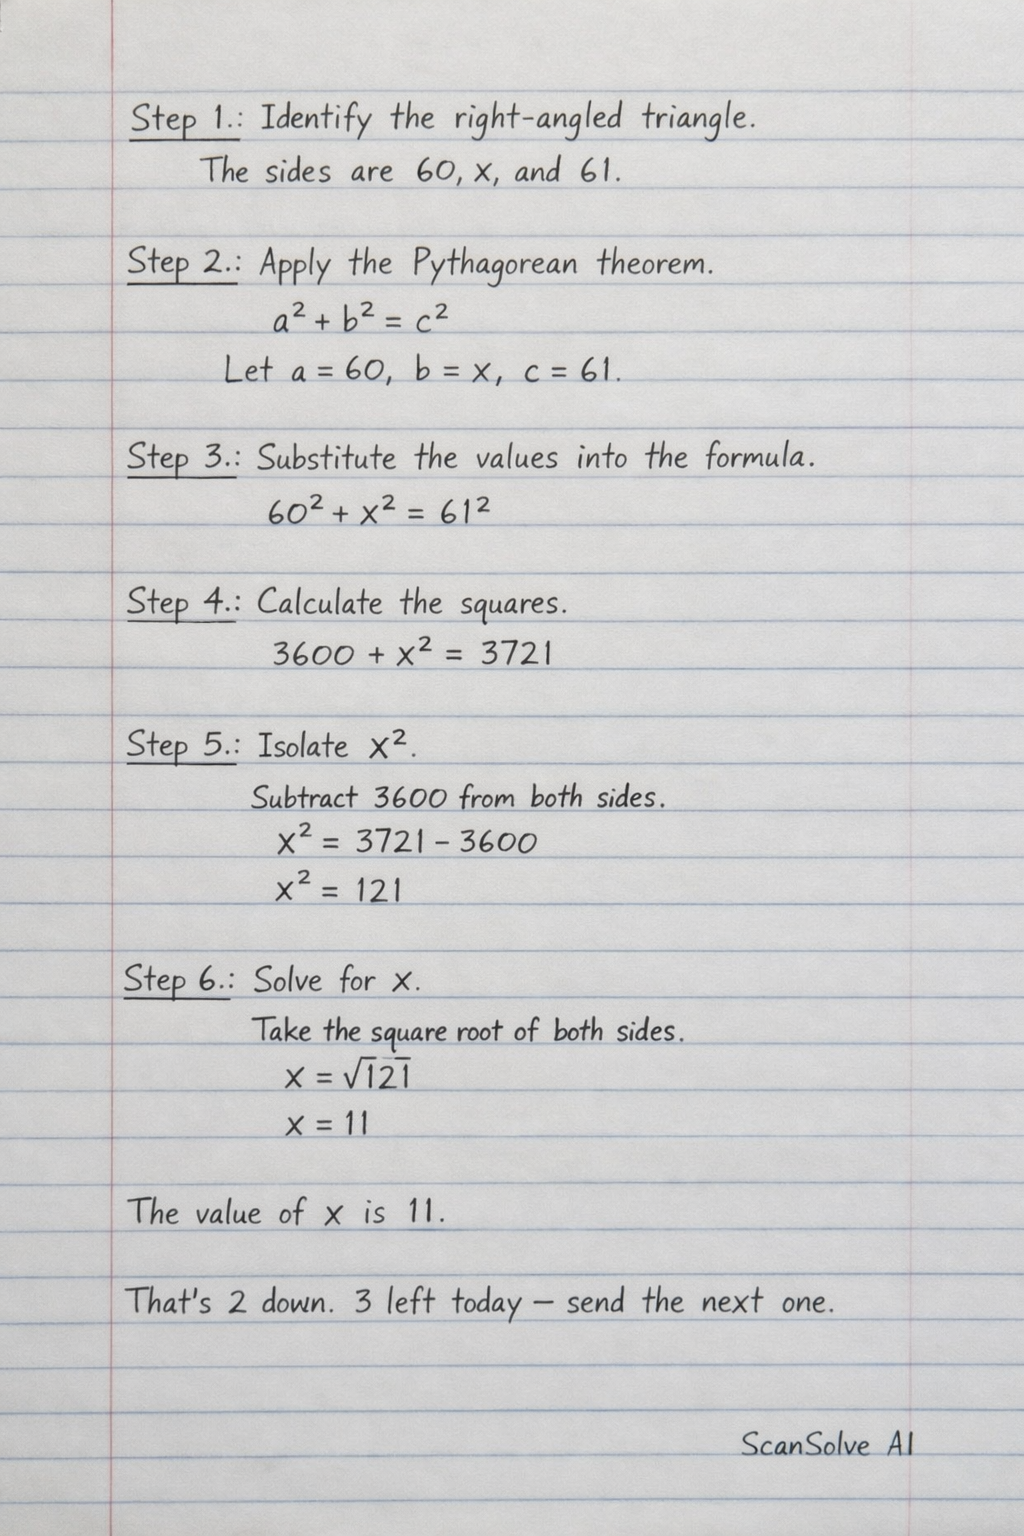 Step 1.: Identify the right-angled triangle.
The sides are 60, x, and 61.
Step 2.: Apply the Pythagorean theorem.
a² + b² = c²
Let a = 60, b = x, c = 61.
Step 3.: Substitute the values into the formula.
60² + x² = 61²
Step 4.: Calculate the squares.
3600 + x² = 3721
Step 5.: Isolate x².
Subtract 3600 from both sides.
x² = 3721 – 3600
x² = 121
Step 6.: Solve for x.
Take the square root of both sides.
x = √121
x = 11
The value of x is 11.
That's 2 down. 3 left today — send the next one.
ScanSolve AI